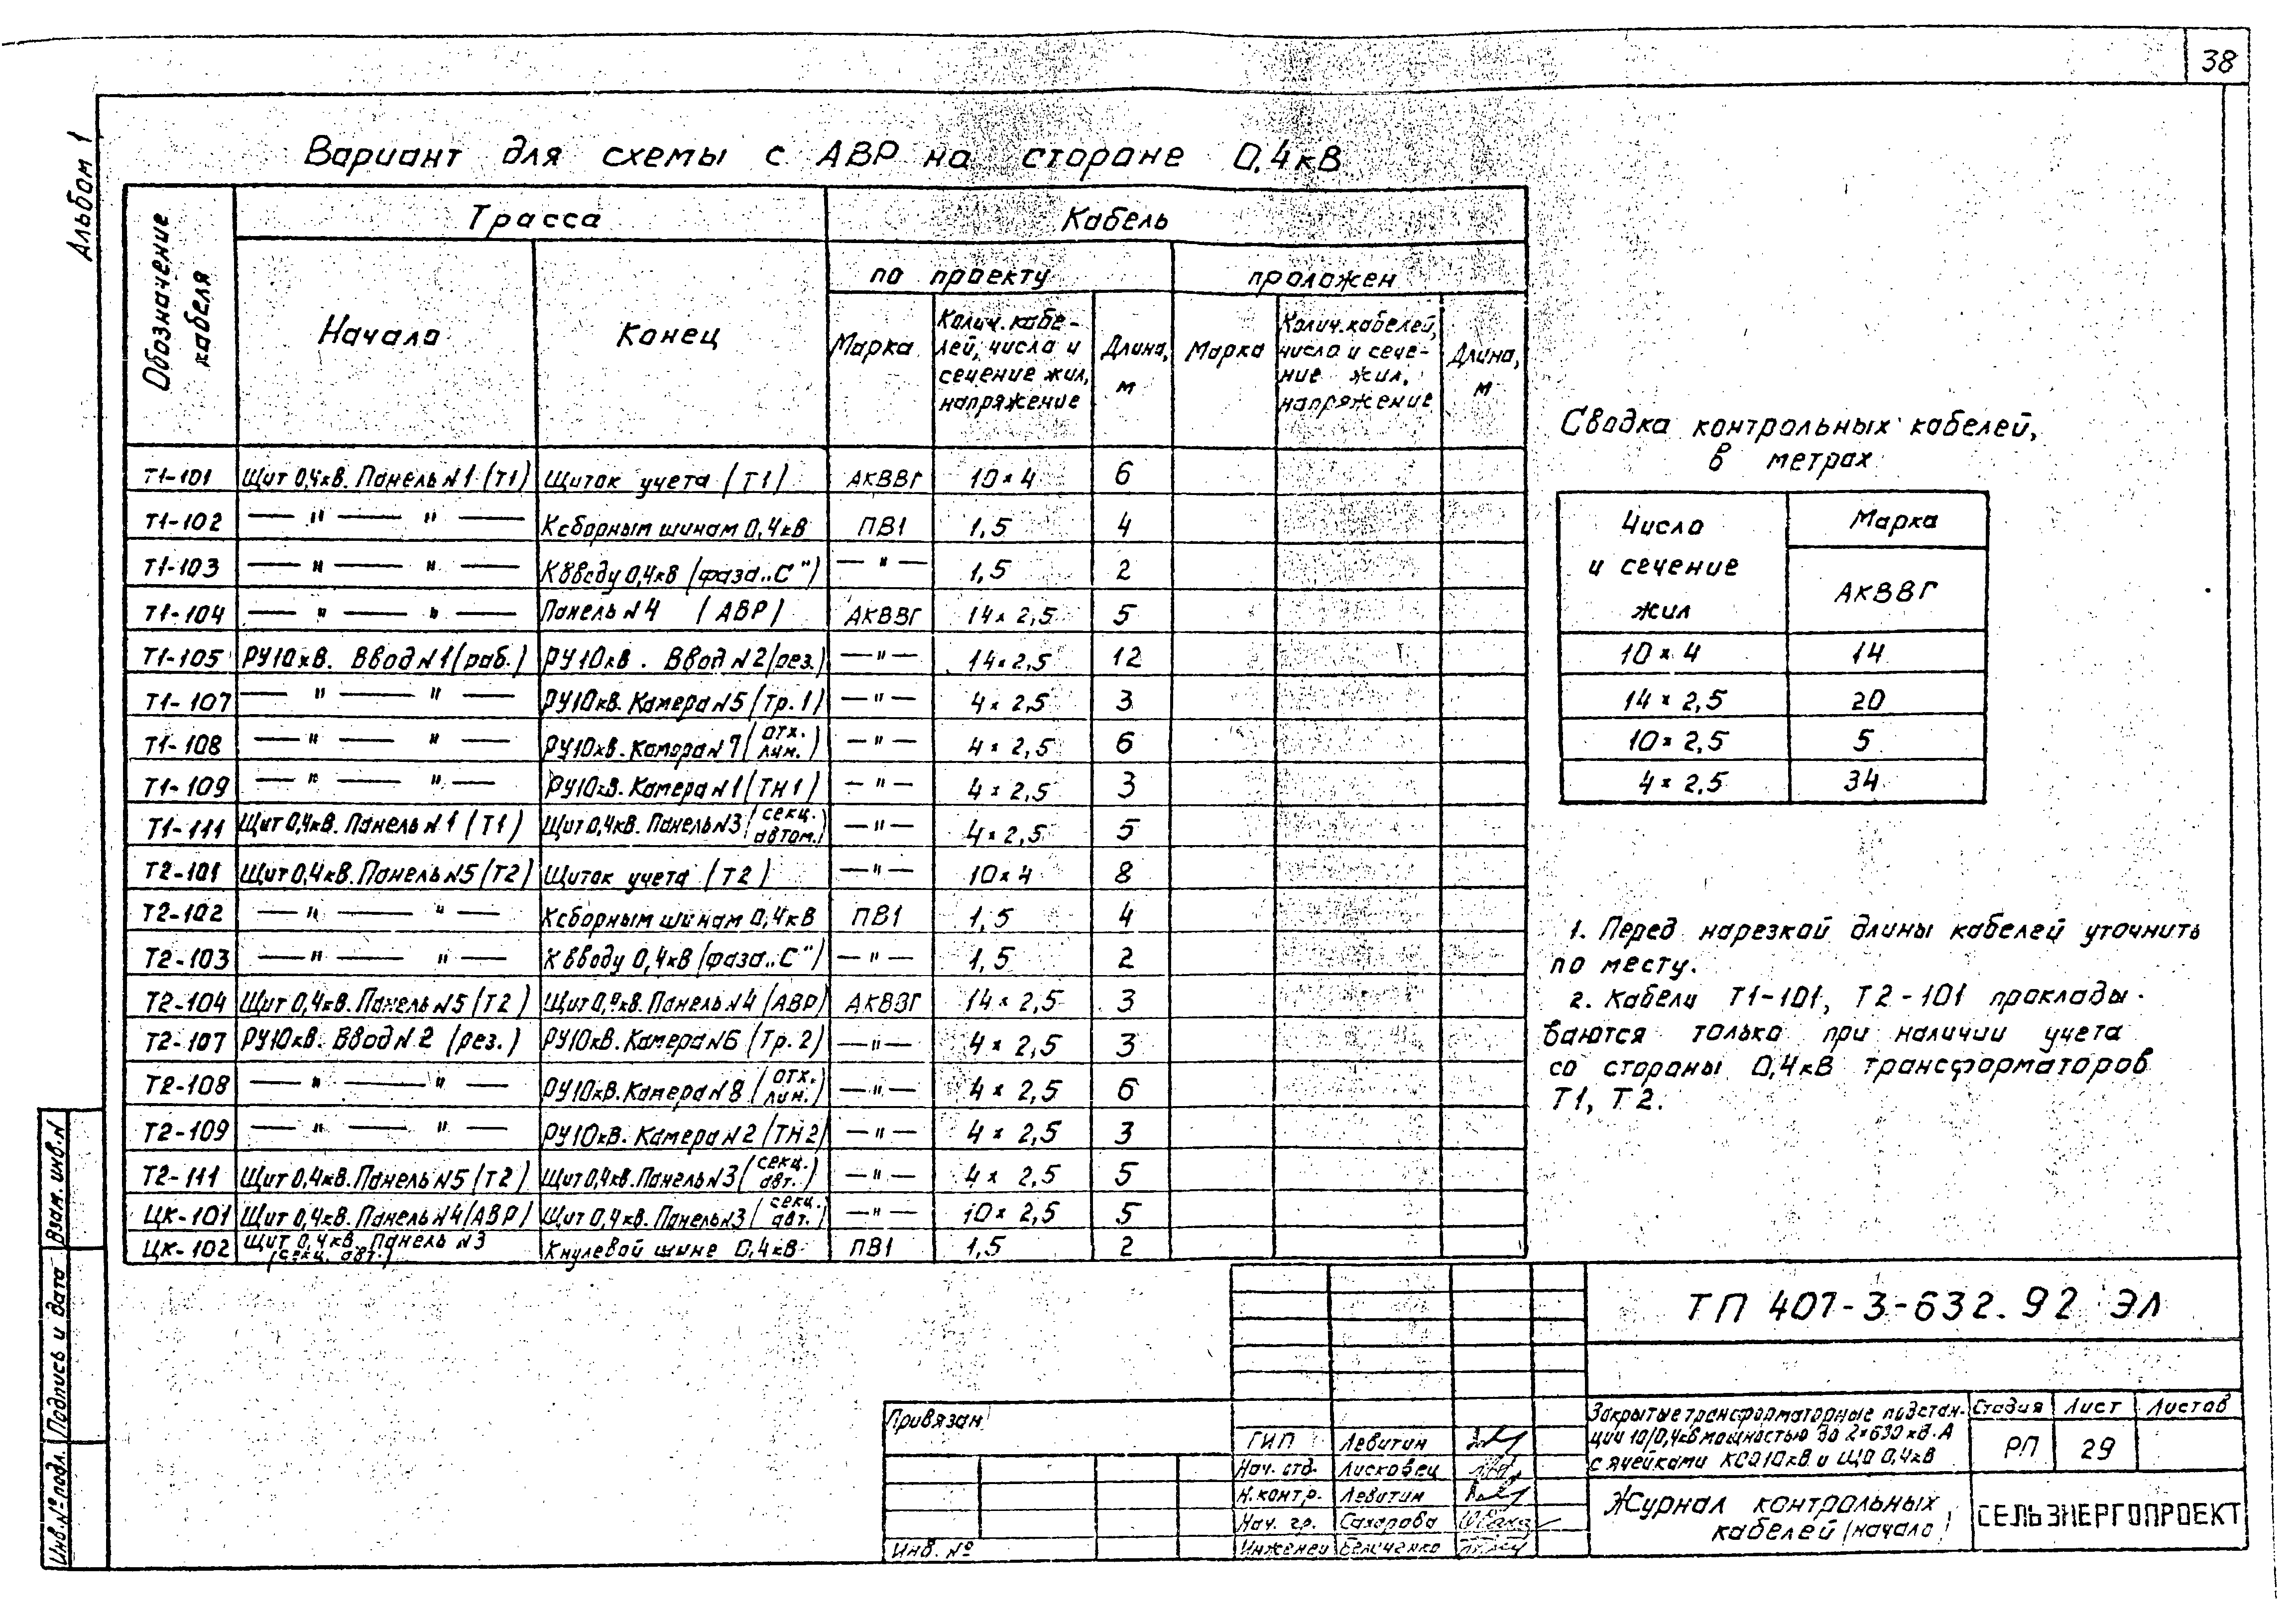 38
Альбом 1
Вариант для схемы с АВР на стороне 0,4кВ
Обозначение кабеля
Трасса
Кабель
Начало
Конец
по проекту
проложен
Марка
Колич. кабе-
лей, число и
сечение жил,
напряжение
Длина,
м
Марка
Колич. кабелей,
число и сече-
ние жил,
напряжение
Длина,
м
Т1-101 Щит 0,4кВ. Панель N1 (Т1) Щиток учета (Т1) АКВВГ 10×4 6
Т1-102 — " — " — К сборным шинам 0,4кВ ПВ1 1,5 4
Т1-103 — " — " — К вводу 0,4кВ (фаза „С") — " — 1,5 2
Т1-104 — " — " — Панель N4 (АВР) АКВВГ 14×2,5 5
Т1-105 РУ10кВ. Ввод N1 (раб.) РУ10кВ. Ввод N2 (рез.) — " — 14×2,5 12
Т1-107 — " — " — РУ10кВ. Камера N5 (Тр.1) — " — 4×2,5 3
Т1-108 — " — " — РУ10кВ. Камера N7 (отх. лин.) — " — 4×2,5 6
Т1-109 — " — " — РУ10кВ. Камера N1 (ТН1) — " — 4×2,5 3
Т1-111 Щит 0,4кВ. Панель N1 (Т1) Щит 0,4кВ. Панель N3 (секц. автом.) — " — 4×2,5 5
Т2-101 Щит 0,4кВ. Панель N5 (Т2) Щиток учета (Т2) — " — 10×4 8
Т2-102 — " — " — К сборным шинам 0,4кВ ПВ1 1,5 4
Т2-103 — " — " — К вводу 0,4кВ (фаза „С") — " — 1,5 2
Т2-104 Щит 0,4кВ. Панель N5 (Т2) Щит 0,4кВ. Панель N4 (АВР) АКВВГ 14×2,5 3
Т2-107 РУ10кВ. Ввод N2 (рез.) РУ10кВ. Камера N6 (Тр.2) — " — 4×2,5 3
Т2-108 — " — " — РУ10кВ. Камера N8 (отх. лин.) — " — 4×2,5 6
Т2-109 — " — " — РУ10кВ. Камера N2 (ТН2) — " — 4×2,5 3
Т2-111 Щит 0,4кВ. Панель N5 (Т2) Щит 0,4кВ. Панель N3 (секц. авт.) — " — 4×2,5 5
ЦК-101 Щит 0,4кВ. Панель N4 (АВР) Щит 0,4кВ. Панель N3 (секц. авт.) — " — 10×2,5 5
ЦК-102 Щит 0,4кВ. Панель N3 (секц. авт.) К нулевой шине 0,4кВ ПВ1 1,5 2
Сводка контрольных кабелей,
в метрах
Число
и сечение
жил
Марка
АКВВГ
10×4 14
14×2,5 20
10×2,5 5
4×2,5 34
1. Перед нарезкой длины кабелей уточнить
по месту.
2. Кабели Т1-101, Т2-101 проклады-
ваются только при наличии учета
со стороны 0,4кВ трансформаторов
Т1, Т2.
Взам. инв. N
Подпись и дата
Инв. № подл.
ТП 407-3-632.92 ЭЛ
Привязан
Инв. №
ГИП Левитин
Нач. отд. Лисковец
Н. контр. Левитин
Нач. гр. Сахарова
Инженер
Закрытые трансформаторные подстан-
ции 10/0,4кВ мощностью до 2×630 кВ.А
с ячейками КСО 10кВ и ЩО 0,4кВ
Стадия Лист Листов
РП 29
Журнал контрольных
кабелей (начало)
СЕЛЬЭНЕРГОПРОЕКТ